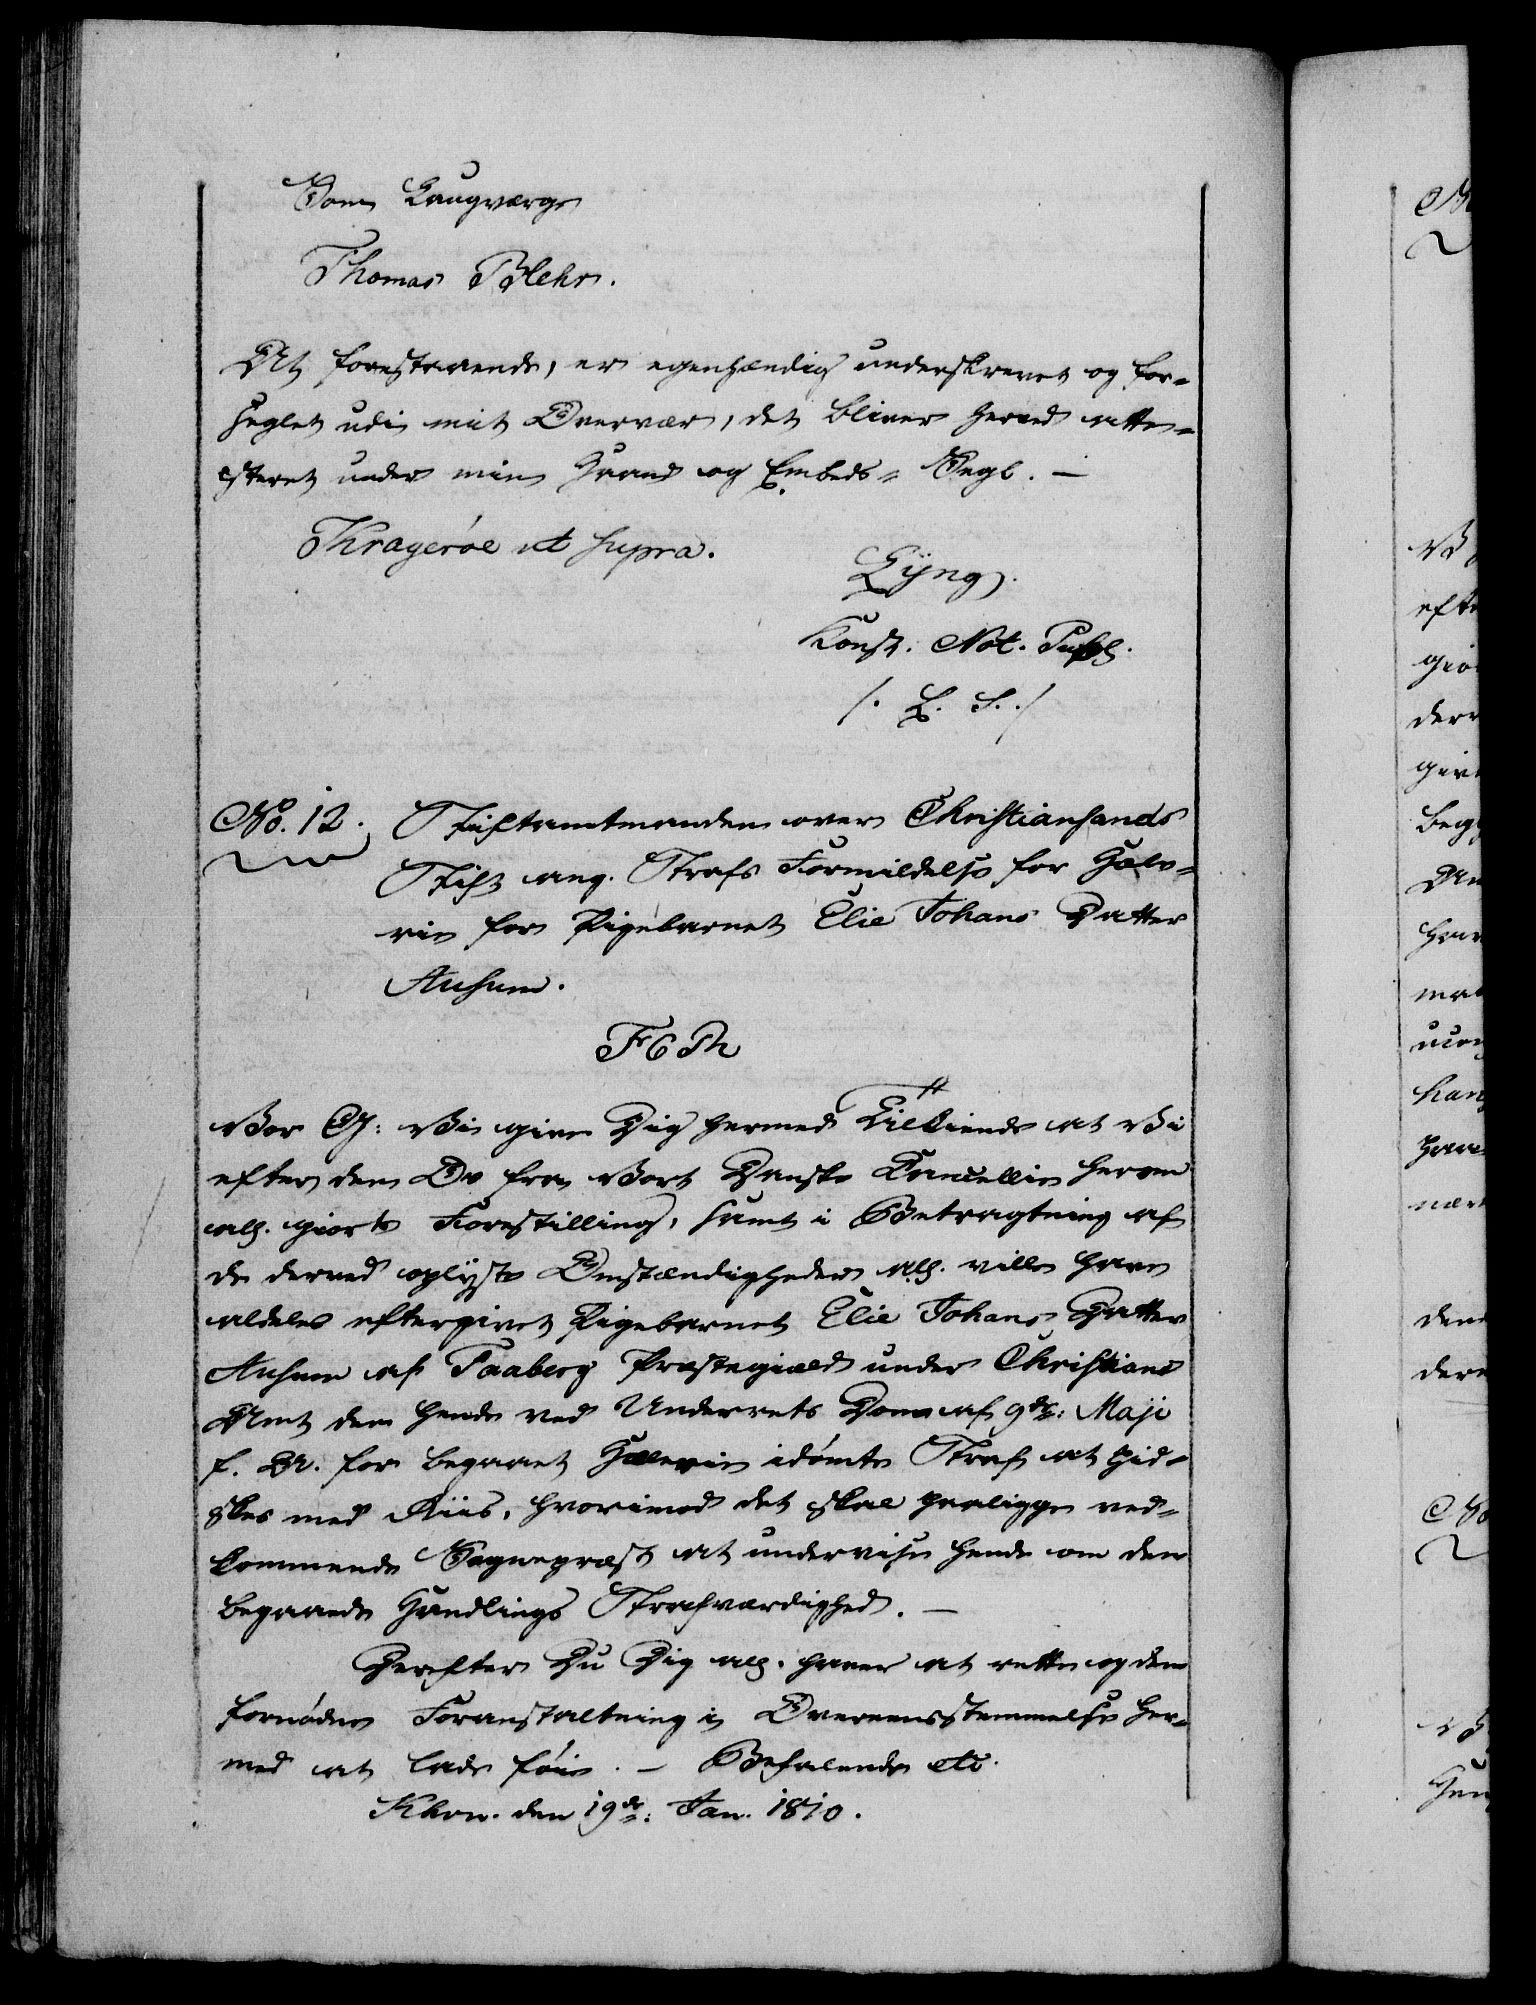 Som Laugværge
Thomas Blehr.
At forestaaende, er egenhændig underskrevet og for-
seglet udi mit Overvær, det bliver herved atte-
steret under min Haand og Embeds-Segl. —
Kragerøe ut supra.
Lyng.
Const. Not. Publ.
/. L. S. ./
No. 12. Stiftamtmanden over Christiansands
Stift ang. Strafs Formildelse for Hæle-
rie for Pigebarnet Elie Johans Datter
Aulum.
F 6 Th
Vor G: Vi give Dig hermed Tilkiende at Vi
efter den Os fra Vort Danske Cancellie herom
all. giorte Forestilling, samt i Betragtning af
de derved oplyste Omstændigheder all. ville have
aldeles eftergivet Pigebarnet Elie Johans Datter
Aulum af Faaberg Præstegield under Christians
Amt den hende ved Underrets Dom af 9de: Maji
f. A. for begaaet Hælerie idømte Straf at hid-
skes med Riis, hvorimod det skal paaligge ved-
kommende Sognepræst at undervise hende om den
begaaede Handlings Strafværdighed. —
Herefter Du Dig all. haver at rette og den
fornødne Foranstaltning i Overeensstemmelse her-
med at lade føie. — Befalende etc.
Khvn. den 19de: Jan. 1810.